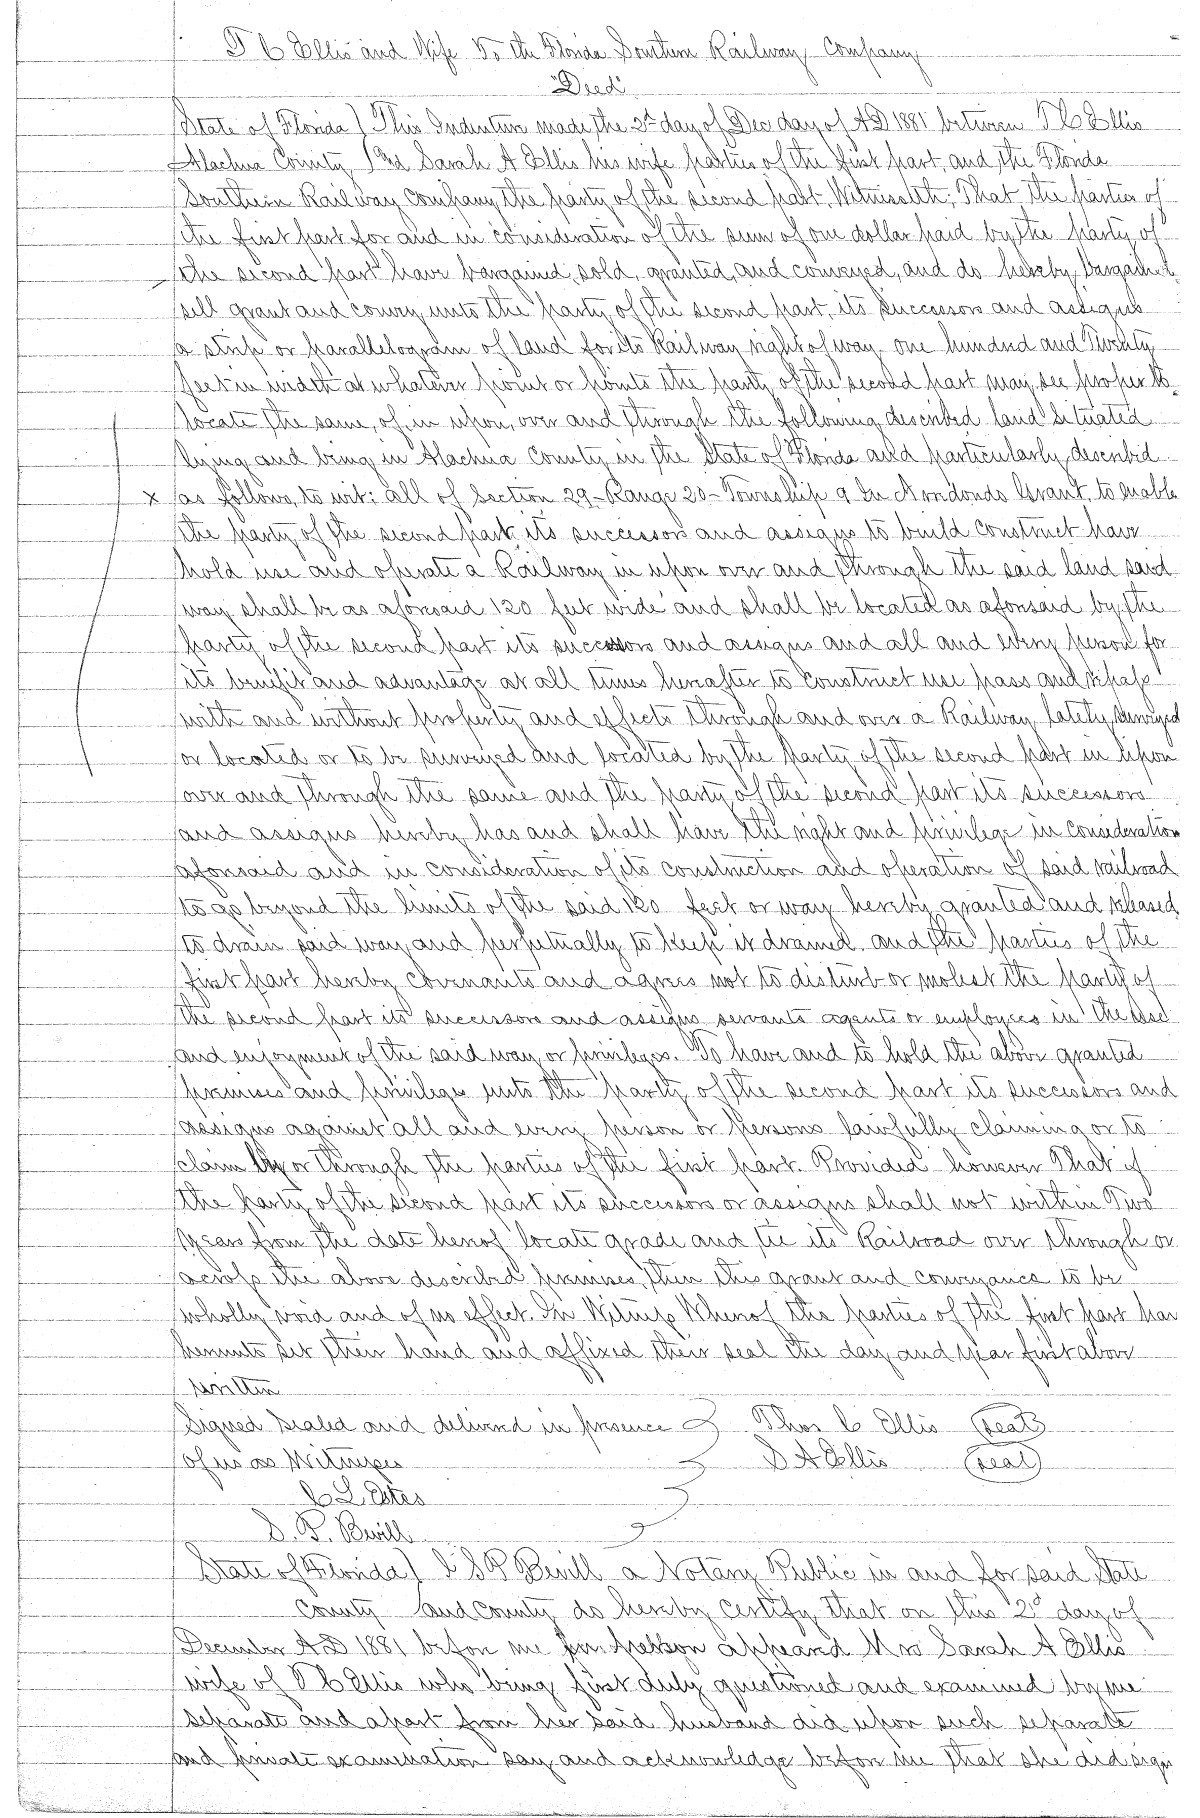 T C Ellis and Wife To the Florida Southern Railway Company
"Deed"
State of Florida } This Indenture made the 2d day of Dec day of AD 1881 between T C Ellis
Alachua County } and Sarah A Ellis his wife parties of the first part, and the Florida
Southern Railway Company the party of the second part, Witnesseth; That the parties of
the first part for and in consideration of the sum of one dollar paid by the party of
the second part have bargained, sold, granted, and conveyed, and do hereby bargain
sell grant and convey unto the party of the second part, its successors and assigns
a strip or parallelogram of land for its Railway right of way, one hundred and Twenty
feet in width at whatever point or points the party of the second part may see proper to
locate the same, of in upon, over and through the following described land situated
lying and being in Alachua County in the State of Florida and particularly described
x as follows, to wit: all of Section 29 - Range 20 - Township 9 In Arredondo Grant, to enable
the party of the second part, its successors and assigns to build construct have
hold use and operate a Railway in upon over and through the said land said
way shall be as aforesaid 120 feet wide and shall be located as aforesaid by the
party of the second part its successors and assigns and all and every person for
its benefit and advantage at all times hereafter to construct use pass and repass
with and without property and effects through and over a Railway lately surveyed
or located or to be surveyed and located by the party of the second part in upon
over and through the same and the party of the second part its successors
and assigns hereby has and shall have the right and privilege in consideration
aforesaid and in consideration of its construction and operation of said railroad
to go beyond the limits of the said 120 feet or way hereby granted and released
to drain said way and perpetually to keep it drained. and the parties of the
first part hereby covenants and agrees not to disturb or molest the party of
the second part its successors and assigns servants agents or employees in the use
and enjoyment of the said way or privileges. To have and to hold the above granted
premises and privileges unto the party of the second part its successors and
assigns against all and every person or persons lawfully claiming or to
claim by or through the parties of the first part. Provided however That if
the party of the second part its successors or assigns shall not within Two
years from the date hereof locate grade and tie its Railroad over through or
across the above described premises, then this grant and conveyance to be
wholly void and of no effect. In Witness Whereof the parties of the first part have
hereunto set their hand and affixed their seal the day and year first above
written
Signed sealed and delivered in presence } Thos C Ellis (seal)
of us as Witnesses } S A Ellis (seal)
C L Estes
S. P. Bevill
State of Florida } I S P Bevill a Notary Public in and for said State
County and County do hereby certify that on this 2d day of
December AD 1881 before me in person appeared Mrs Sarah A Ellis
wife of T C Ellis who being first duly questioned and examined by me
separate and apart from her said husband did upon such separate
and private examination say and acknowledge before me that she did sign